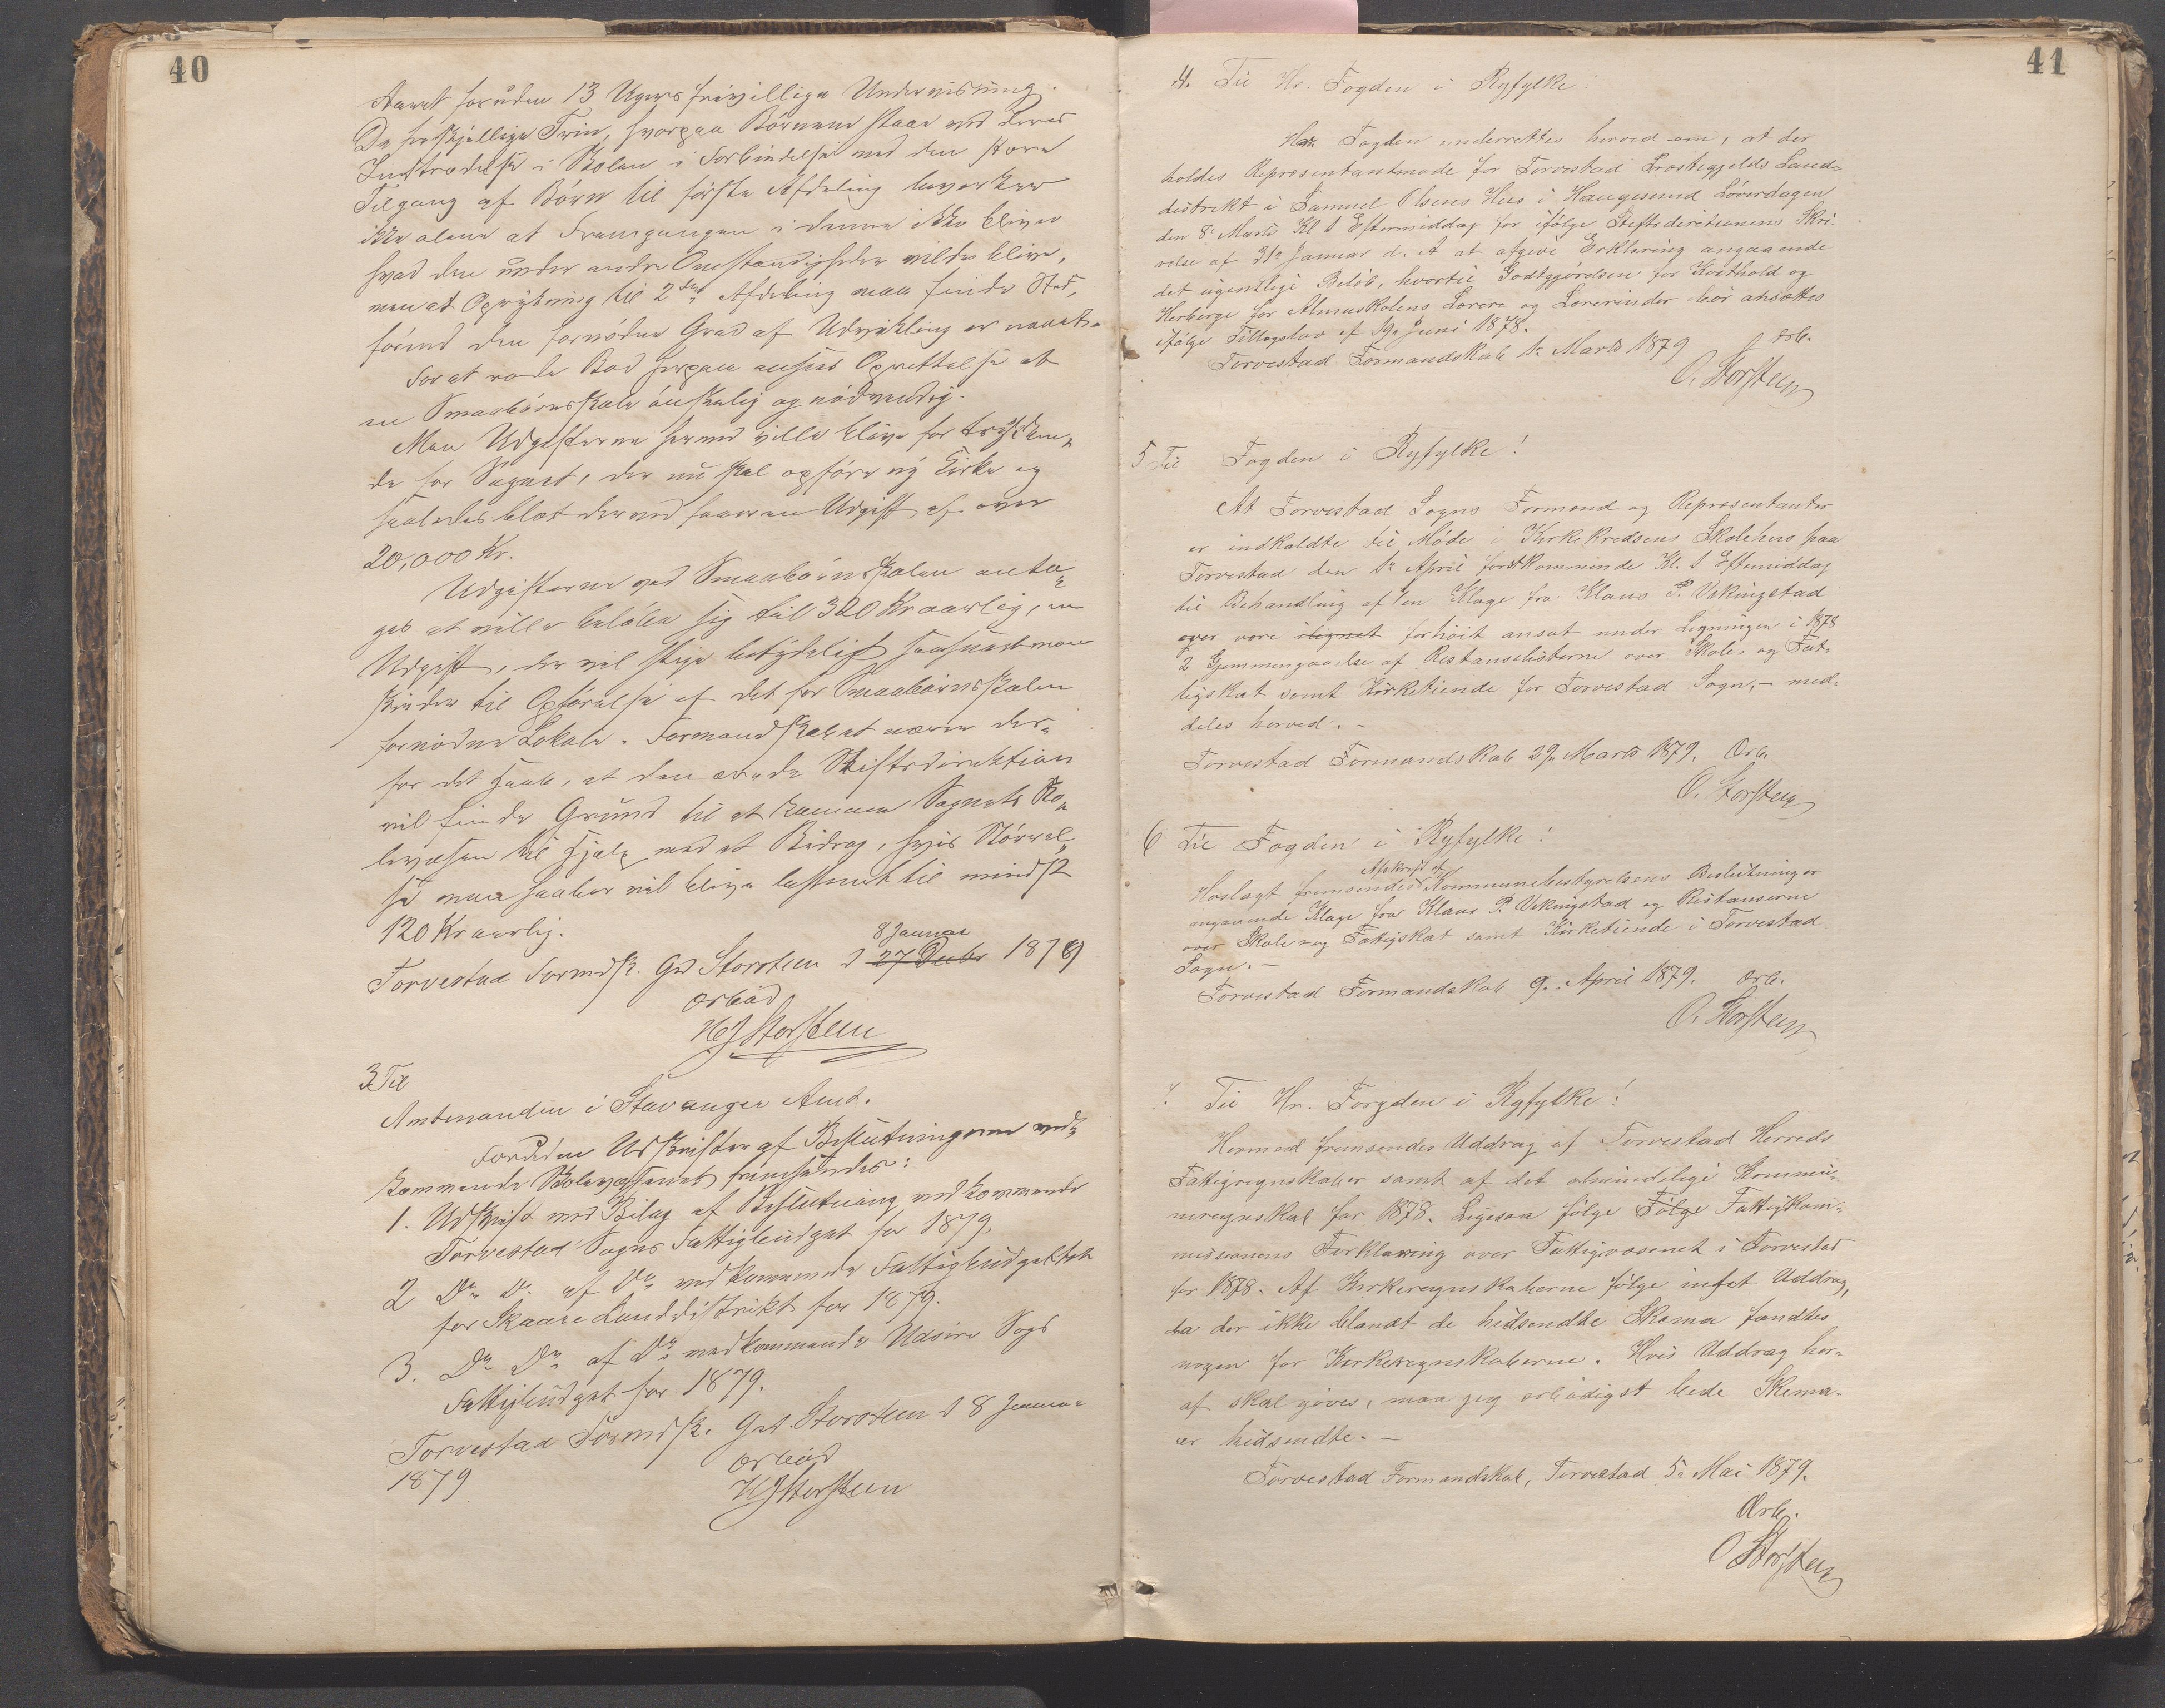 40
Aaret foruden 13 Ugers frivillige Undervisning.
De forskjellige Trin, hvorpaa Börnene staar ved deres
Indtrædelse i Skolen i Forbindelse med den store
Tilgang af Börn til förste Afdeling bevirker
ikke alene at Fremgangen i denne ikke bliver
hvad den under andre Omstændigheder vilde blive,
men at Oprykning til 2den Afdeling maa finde Sted,
förend den fornödne Grad af Udvikling er naaet.
For at raade Bod herpaa ansees Oprettelse af
en Smaabörnsskole önskelig og nödvendig.
Men Udgifterne herved ville blive for trykken-
de for Sognet, der nu skal opföre ny Kirke og
saaledes blot derved faar en Udgift af over
20,000 Kr.
Udgifterne ved Smaabörnsskolen anta-
ges at ville belöbe sig til 320 Kr aarlig, en
Udgift, der vil stige betydeligt saasnart man
skrider til Opförelse af det for Smaabörnsskolen
fornödne Lokale. Formandskabet nærer der-
for det Haab, at den ærede Stiftsdirektion
vil finde Grund til at komme Sognets Sko-
levæsen til Hjælp med et Bidrag, hvis Störrel-
se man haaber vil blive bestemt til mindst
120 Kr aarlig.
8 Januar
Torvestad Formdsk. Grd Storsteen d 27 Decbr 1879
ærböd
H J Storsteen
3. Til
Amtmanden i Stavanger Amt.
Foruden Udskrifter af Beslutningerne ved-
kommende Skolevæsenet fremsendes:
1. Udskrift med Bilag af Beslutning vedkommende
Torvestad Sogns Fattigbudget for 1879.
2 Do Do af Do vedkommende Fattigbudgettet
for Skaare Landdistrikt for 1879.
3. Do Do af Do vedkommende Udsire Sogs
Fattigbudget for 1879.
Torvestad Formdsk. Grd Storsteen d 8 Januar
1879
ærböd
H J Storsteen
41
4. Til Hr. Fogden i Ryfylke!
Hr. Fogden underrettes herved om, at der
holdes Repræsentantmøde for Torvestad Præstegjelds Land-
distrikt i Samuel Olsens Hus i Haugesund Löverdagen
den 8. Marts Kl 1 Eftermiddag for ifölge Stiftsdirektionens Skri-
velse af 31. Januar d. A at afgive Erklæring angaaende
det ugentlige Belöb, hvortil Godtgjörelsen for Kosthold og
Herberge for Almueskolens Lærere og Lærerinder bör ansættes
ifölge Tillægslov af 19. Juni 1878.
Torvestad Formandskab 1. Marts 1879 ærb.
O. Storsteen
5 Til Fogden i Ryfylke!
At Torvestad Sogns Formænd og Repræsentanter
er indkaldte til Möde i Kirkekredsens Skolehus paa
Torvestad den 1. April förstkommende Kl. 1 Eftermiddag
til Behandling af 1 en Klage fra Klaus P. Vikingstad
over være ilignet forhöit ansat under Ligningen i 1878
2 Gjennemgaaelse af Restanselisterne over Skole- og Fat-
tigskat samt Kirketiende for Torvestad Sogn, - med-
deles herved. -
Torvestad Formandskab 29. Marts 1879. Ærb.
O. Storsteen
6 Til Fogden i Ryfylke!
Afskrift af
Hoslagt fremsendes Kommunebestyrelsens Beslutninger
angaaende Klage fra Klaus P. Vikingstad og Restanserne
over Skole- og Fattigskat samt Kirketiende i Torvestad
Sogn. -
Torvestad Formandskab 9. April 1879. ærb.
O. Storsteen
7. Til Hr. Forgden i Ryfylke!
Hermed fremsendes Uddrag af Torvestad Herreds
Fattigregnskaber samt af det almindelige Kommu-
neregnskab for 1878. Ligesaa fölge Fölge Fattigkom-
missionens Forklaring over Fattigvæsenet i Torvestad
for 1878. Af Kirkeregnskaberne fölge intet Uddrag,
da der ikke blandt de hidsendte Skema fandtes
nogen for Kirkeregnskaberne. Hvis Uddrag her-
af skal gives, maa jeg ærbödigst bede Skema-
er hidsendte. -
Torvestad Formandskab, Torvestad 5. Mai 1879.
Ærb.
O Storsteen